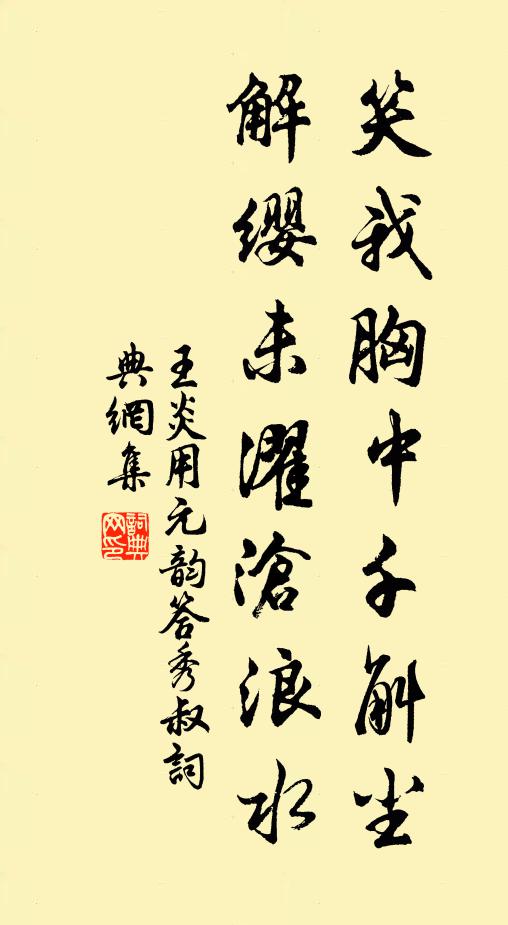 笑我胸中千斛尘
解缨未濯滄浪水
王炎用元韵答秀叔詞
典網集
詞典
网印